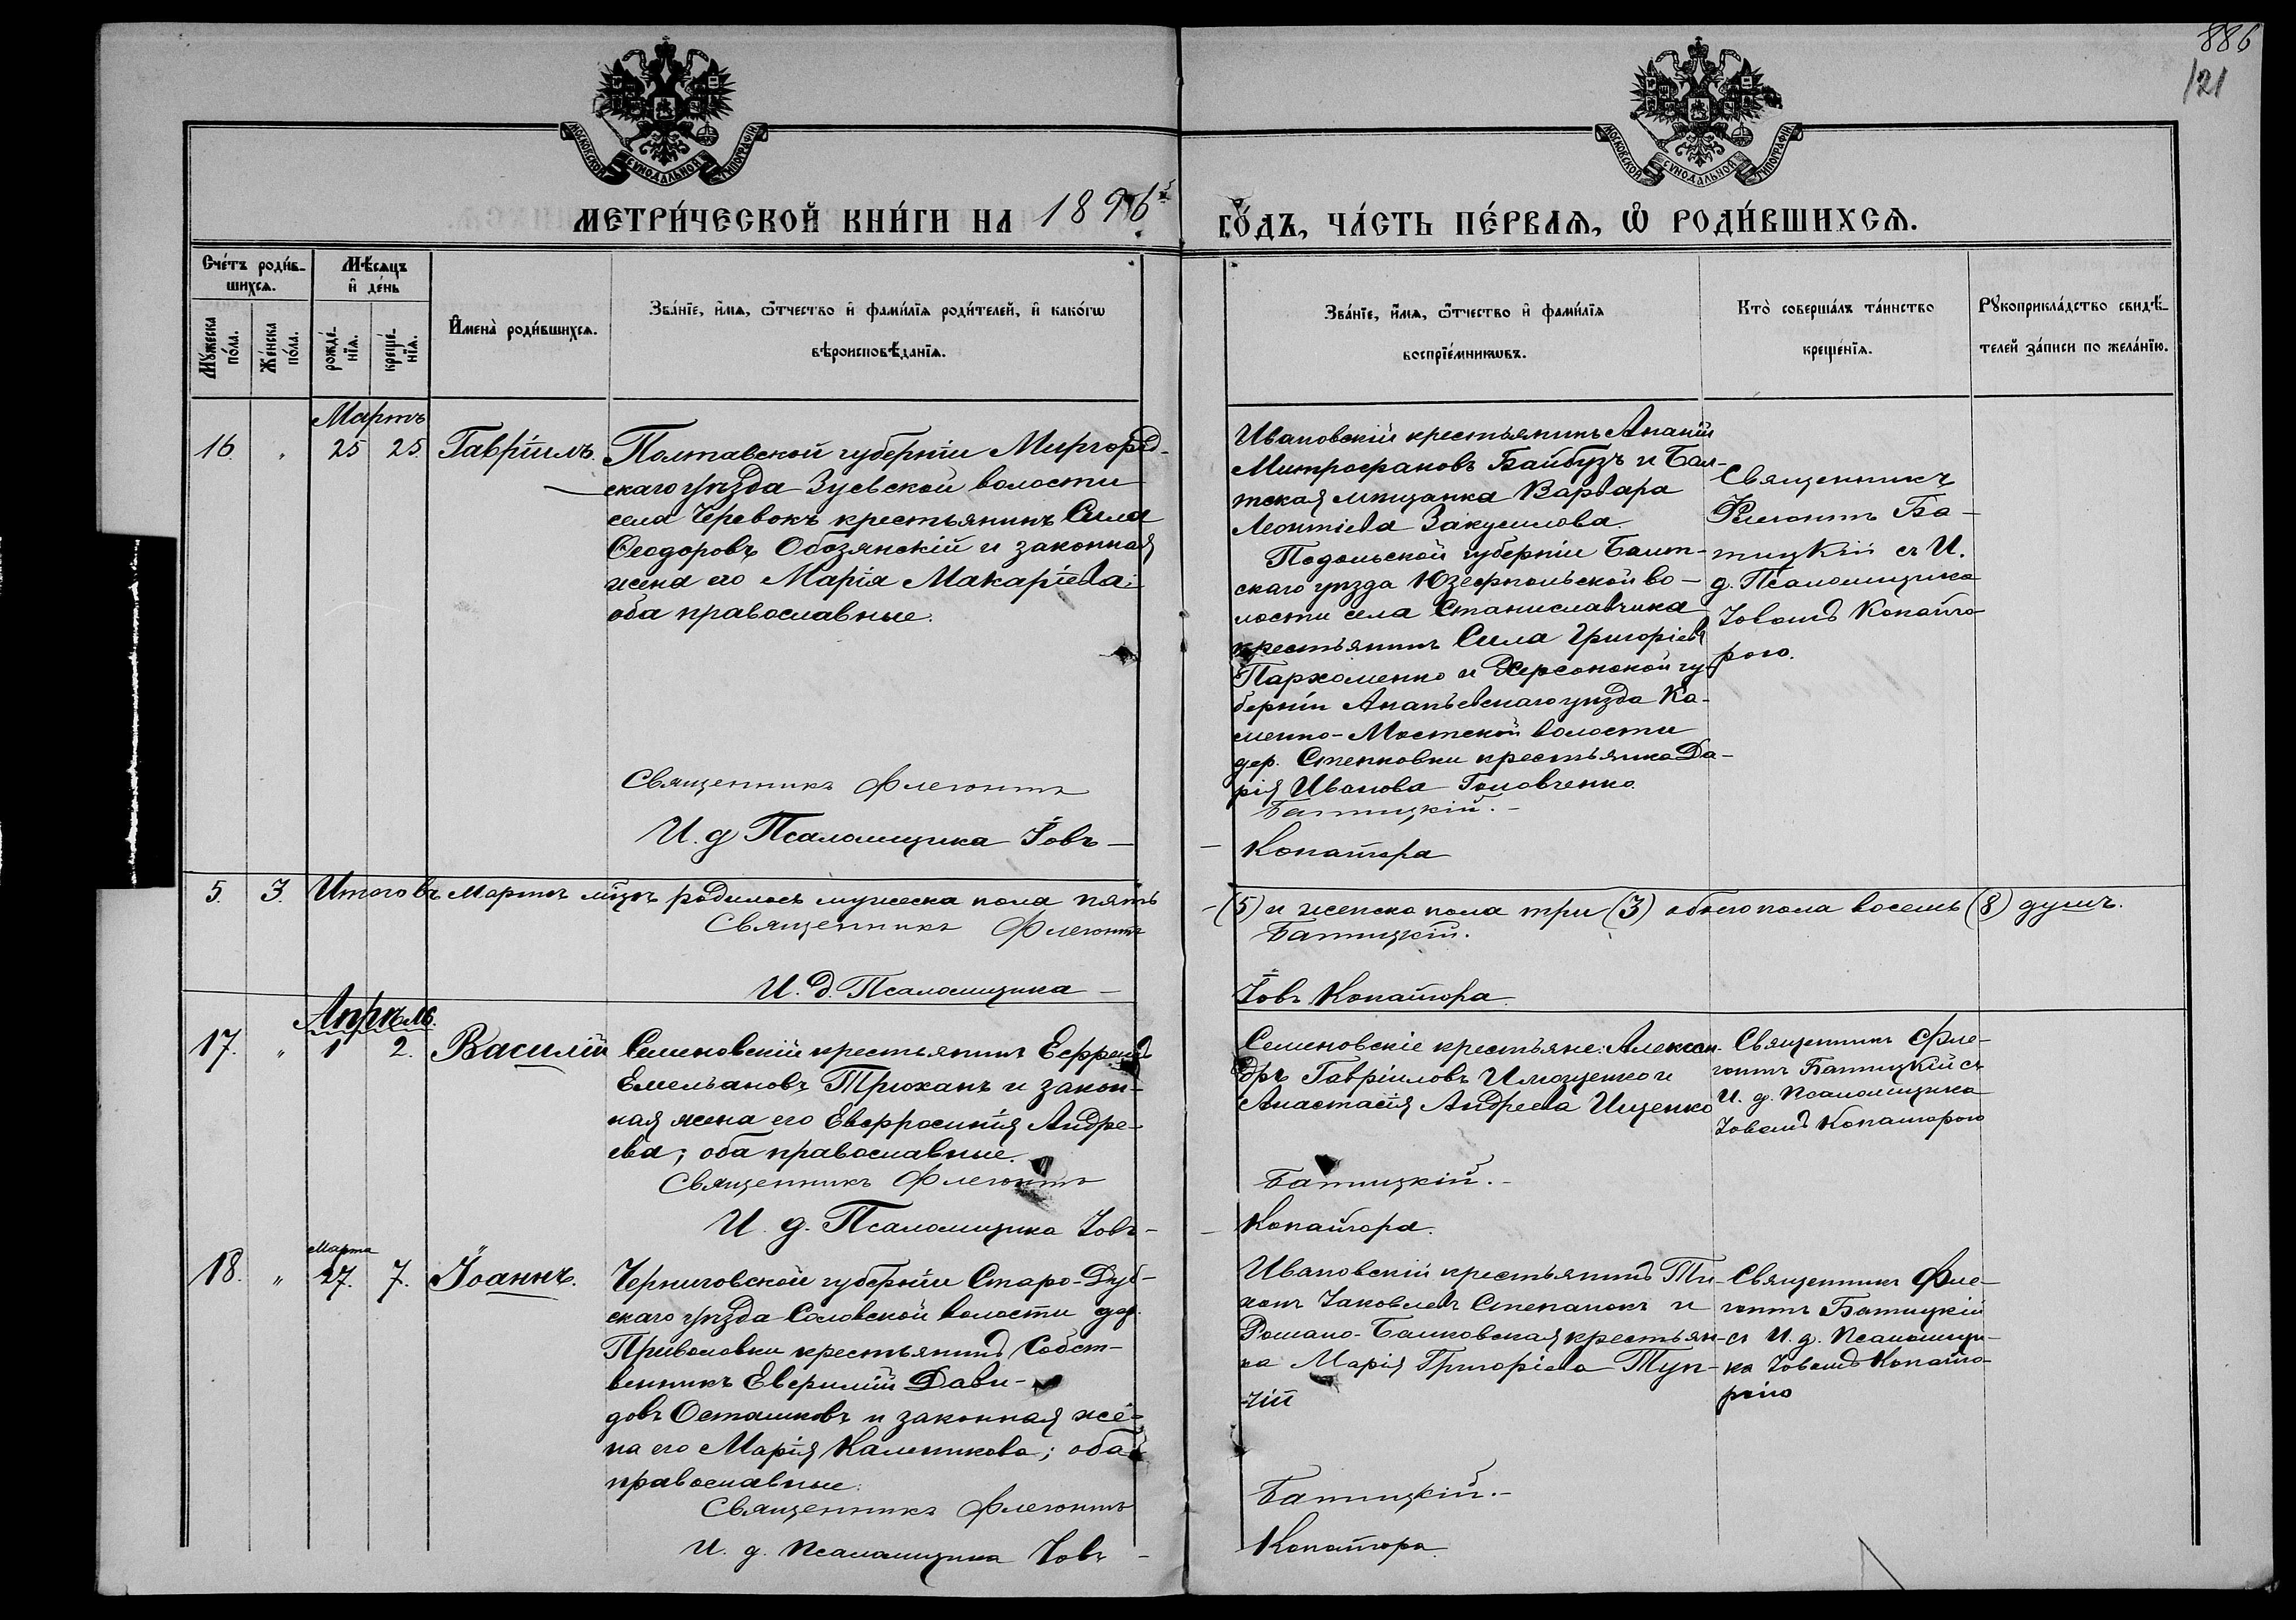 886
121
МОСКОВСКОЙ СѴНОДАЛЬНОЙ ТИПОГРАФІИ
МОСКОВСКОЙ СѴНОДАЛЬНОЙ ТИПОГРАФІИ
МЕТРИ́ЧЕСКОЙ КНИ́ГИ НА 1896й
ГО́ДЪ, ЧА́СТЬ ПЕ́РВАѦ, Ѡ РОДИ́ВШИХСѦ.
Сче́тъ роди́в-
шихсѧ.
Мѣ́сѧцъ
и де́нь
Мꙋ́жеска
по́ла.
Же́нска
по́ла.
рожде́-
нїѧ.
креще́-
нїѧ.
Имена̀ роди́вшихсѧ.
Зва́нїе, и́мѧ, ѻ҆́тчество и фами́лїѧ роди́телей, и како́гѡ
вѣроисповѣ́данїѧ.
Зва́нїе, и́мѧ, ѻ҆́тчество и фами́лїѧ
воспрїе́мникѡвъ.
Кто̀ соверша́лъ та́инство
креще́нїѧ.
Рꙋкоприкла́дство свидѣ́-
телей за́писи по жела́нїю.
Мартъ
16. " 25 25. Гавріилъ.
Полтавской губерніи Миргород-
скаго уѣзда Зуевской волости
села Черевокъ крестьянинъ Сила
Ѳеодоровъ Обозянскій и законная
жена его Марія Макаріева:
оба православные.
Священникъ Флегонтъ
И. д Псаломщика Іовъ –
Ивановскій крестьянинъ Ананій
Митрофановъ Байбузъ и Бал-
тская мѣщанка Варвара
Леонтіева Закусилова.
Подольской губерніи Балт-
скаго уѣзда Юзефпольской во-
лости села Станиславчика
крестьянинъ Сила Григоріевъ
Пархоменко и Херсонской гу-
берніи Ананьевскаго уѣзда Ка-
менно-Мостской волости
дер. Степковки крестьянка Да-
рія Иванова Головченко.
Батицкій. –
– Копатора
Священникъ
Флегонтъ Ба-
тицкій съ И.
д. Псаломщика
Іовомъ Копато-
рою.
5. 3. Итого въ Мартѣ мцѣ родилось мужеска пола пять
– (5) и женска пола три (3) обоего пола восемь (8) душъ.
Священникъ Флегонтъ
Батицкій.
И. д. Псаломщика –
Іовъ Копатора.
Апрѣль.
17. " 1 2. Василій
Семеновскій крестьянинъ Ефремъ
Емельановъ Трюханъ и закон-
ная жена его Евфросинія Андре-
ева; оба православные.
Священникъ Флегонтъ
И. д. Псаломщика Іовъ –
Семеновскіе крестьяне: Алексан-
дръ Гавріиловъ и
Анастасія Андреева Ищенко
Батицкій. –
– Копатора.
Священникъ Фле-
гонтъ Батицкій съ
И. д. Псаломщика
Іовомъ Копаторою
Марта
18. " 27. 7. Іоаннъ.
Черниговской губерніи Старо-Дуб-
скаго уѣзда Соловской волости дер.
Приваловки крестьянинъ Собст-
венникъ Евфимій Дави-
довъ Осташковъ и законная же-
на его Марія Каленикова; оба
православные.
Священникъ Флегонтъ
И. д. Псаломщика Іовъ –
Ивановскій крестьянинъ Ти-
хонъ Іаковлевъ Степанокъ и
Романо-Балковская крестьян-
ка Марія Григоріева Туп-
чій
Батицкій. –
Копатора.
Священникъ Фле-
гонтъ Батицкій
съ И. д. Псаломщи-
ка Іовомъ Копато-
рою